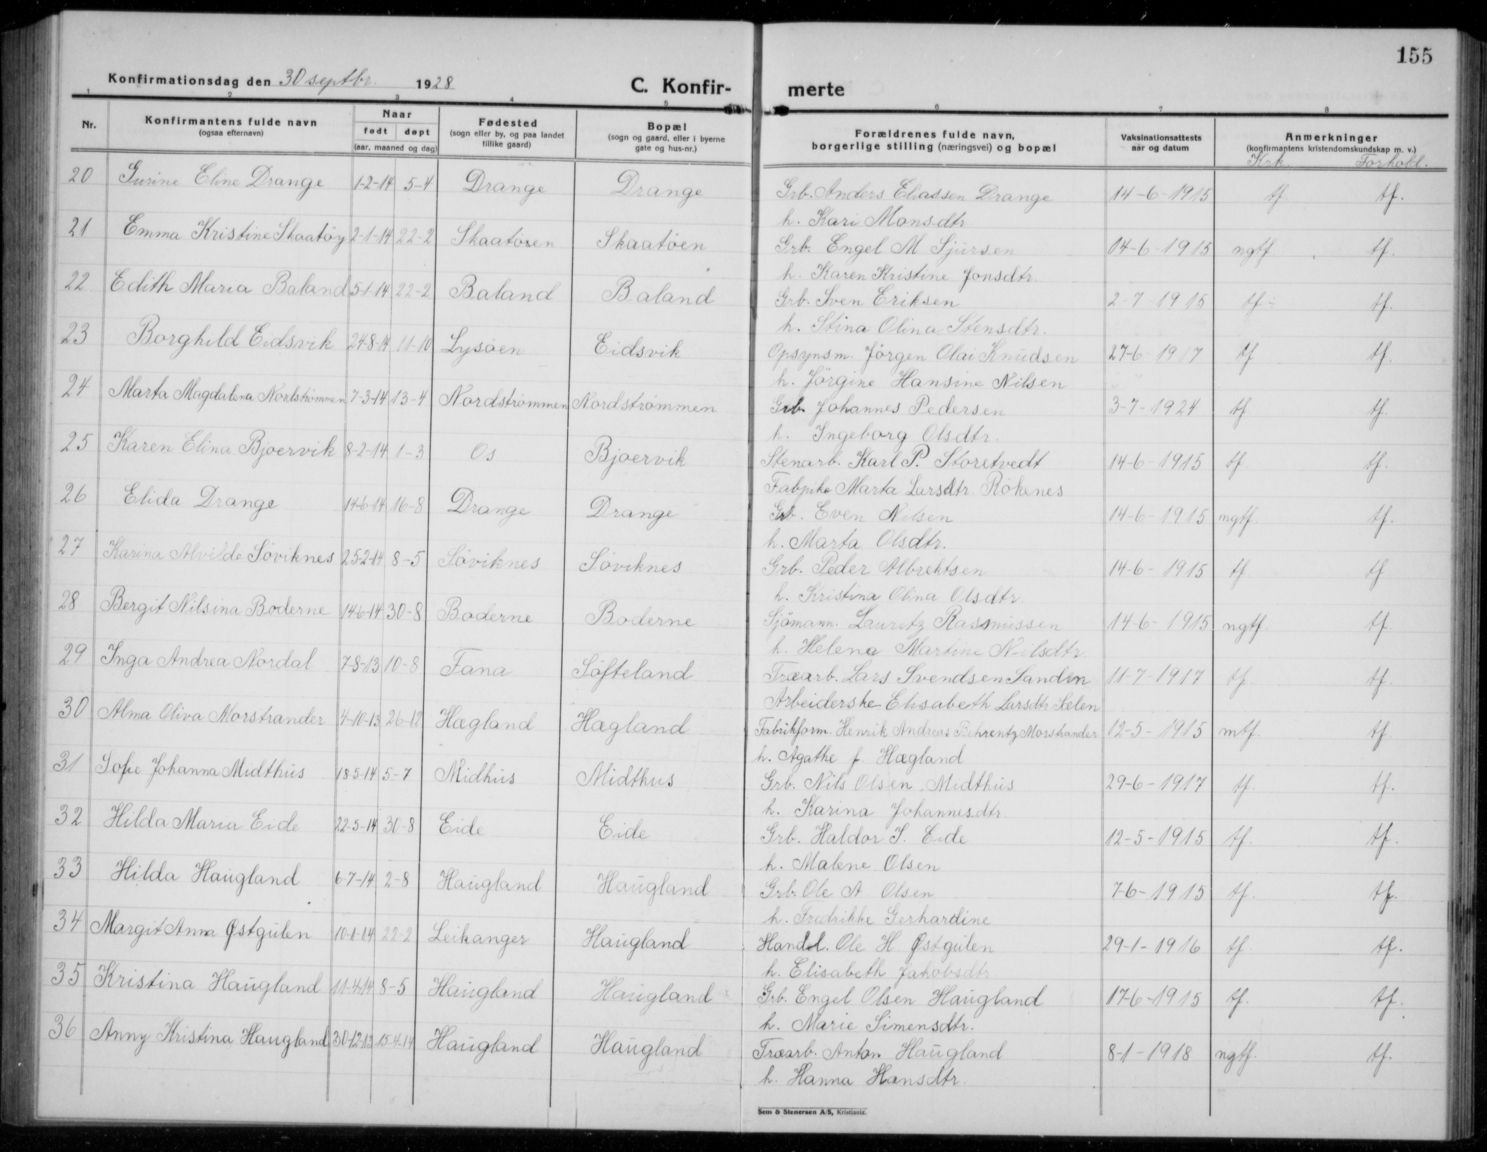 155
Konfirmationsdag den 30 septbr. 1928 C. Konfirmerte
1 2 3 4 5 6 7 8
Nr. Konfirmantens fulde navn (ogsaa efternavn) Naar født døpt (aar, maaned og dag) Fødested (sogn eller by, og paa landet tillike gaard) Bopæl (sogn og gaard, eller i byerne gate og hus-nr.) Forældrenes fulde navn, borgerlige stilling (næringsvei) og bopæl Vaksinationsattests aar og datum Anmerkninger (konfirmantens kristendomskundskap m. v.)
Krk. Forhold.
20 Gurine Eline Drange 1-2-14 5-4 Drange Drange Grb. Anders Eliassen Drange 14-6-1915 tf tf.
h. Kari Monsdtr
21 Emma Kristine Skaatøy 2-1-14 22-2 Skaatøen Skaatøen Grb. Engel M Sjursen 04-6-1915 ngtf. tf.
h. Karen Kristine Jonsdtr.
22 Edith Maria Baland 5-1-14 22-2 Baland Baland Grb. Sven Eriksen 2-7-1915 tf- tf.
h. Stina Olina Stensdtr.
23 Borghild Eidsvik 24-8-14 11-10 Lysøen Eidsvik Opsynsm. Jørgen Olai Knudsen 27-6-1917 tf tf.
h. Jørgine Hansine Nilsen
24 Marta Magdalena Nordstrømmen 7-3-14 13-4 Nordstrømmen Nordstrømmen Grb. Johannes Pedersen 3-7-1924 tf tf.
h. Ingeborg Olsdtr.
25 Karen Elina Bjøervik 8-2-14 1-3 Os Bjøervik Stenarb. Karl P. Storetvedt 14-6-1915 tf tf.
Fabpike Marta Larsdtr. Røkenes
26 Elida Drange 14-6-14 16-8 Drange Drange Grb. Even Nilsen 14-6-1915 mgtf. tf.
h. Marta Olsdtr.
27 Karina Alvilde Søviknes 25-2-14 8-5 Søviknes Søviknes Grb. Peder Albrektsen 14-6-1915 tf tf
h. Kristina Olina Olsdtr.
28 Bergit Nilsina Boderne 14-6-14 30-8 Boderne Boderne Sjømann. Lauretz Rasmussen 14-6-1915 ngtf. tf.
h. Helena Martine Nilsdtr.
29 Inga Andrea Nordal 7-8-13 10-8 Fana Søfteland Træarb. Lars Svendsen Sandvn 11-7-1917 tf. tf.
Arbeiderske Elisabeth Larsdtr Selen
30 Alma Oliva Morstrander 4-10-13 26-12 Hægland Hægland Fabrikform. Henrik Andreas Behrentz Morstrander 12-5-1915 mtf. tf.
h. Agathe f. Hægland
31 Sofie Johanna Midthus 18-5-14 5-7 Midhus Midthus Grb. Nils Olsen Midthus 29-6-1917 tf. tf.
h. Karina Johannesdtr.
32 Hilda Maria Eide 22-5-14 30-8 Eide Eide Grb. Haldor S. Eide 12-5-1915 tf. tf.
h. Malene Olsen
33 Hilda Haugland 6-7-14 2-8 Haugland Haugland Grb. Ole A. Olsen 7-6-1915 tf. tf.
h. Fredrikke Gerhardine
34 Margit Anna Østgulen 10-1-14 22-2 Leikanger Haugland Handl. Ole H. Østgulen 29-1-1916 tf. tf.
h. Elisabeth Jakobsdtr.
35 Kristina Haugland 11-4-14 8-5 Haugland Haugland Grb. Engel Olsen Haugland 17-6-1915 tf. tf.
h. Marie Simensdtr.
36 Anny Kristina Haugland 30-12-13 15-4-14 Haugland Haugland Træarb. Anton Haugland 8-1-1918 ngtf. tf.
h. Hanna Hansdtr.
Sem & Stenersen A/S, Kristiania.